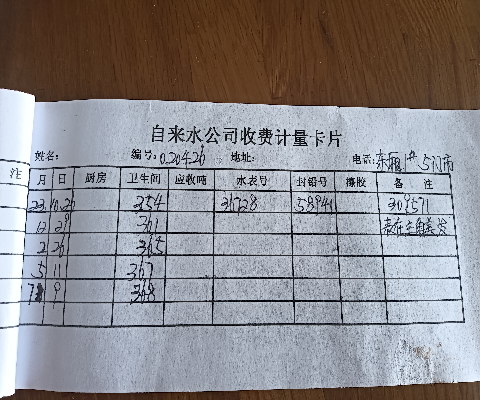 自来水公司收费计量卡片
姓名： 编号：020426 地址： 电话：
注 月 日 厨房 卫生间 应收吨 水表号 封铅号 撤胶 备 注
23 10.26 354 31728 58941 309571
12 29 361 表在主角
2 26 365
5 11 367
7 9 368